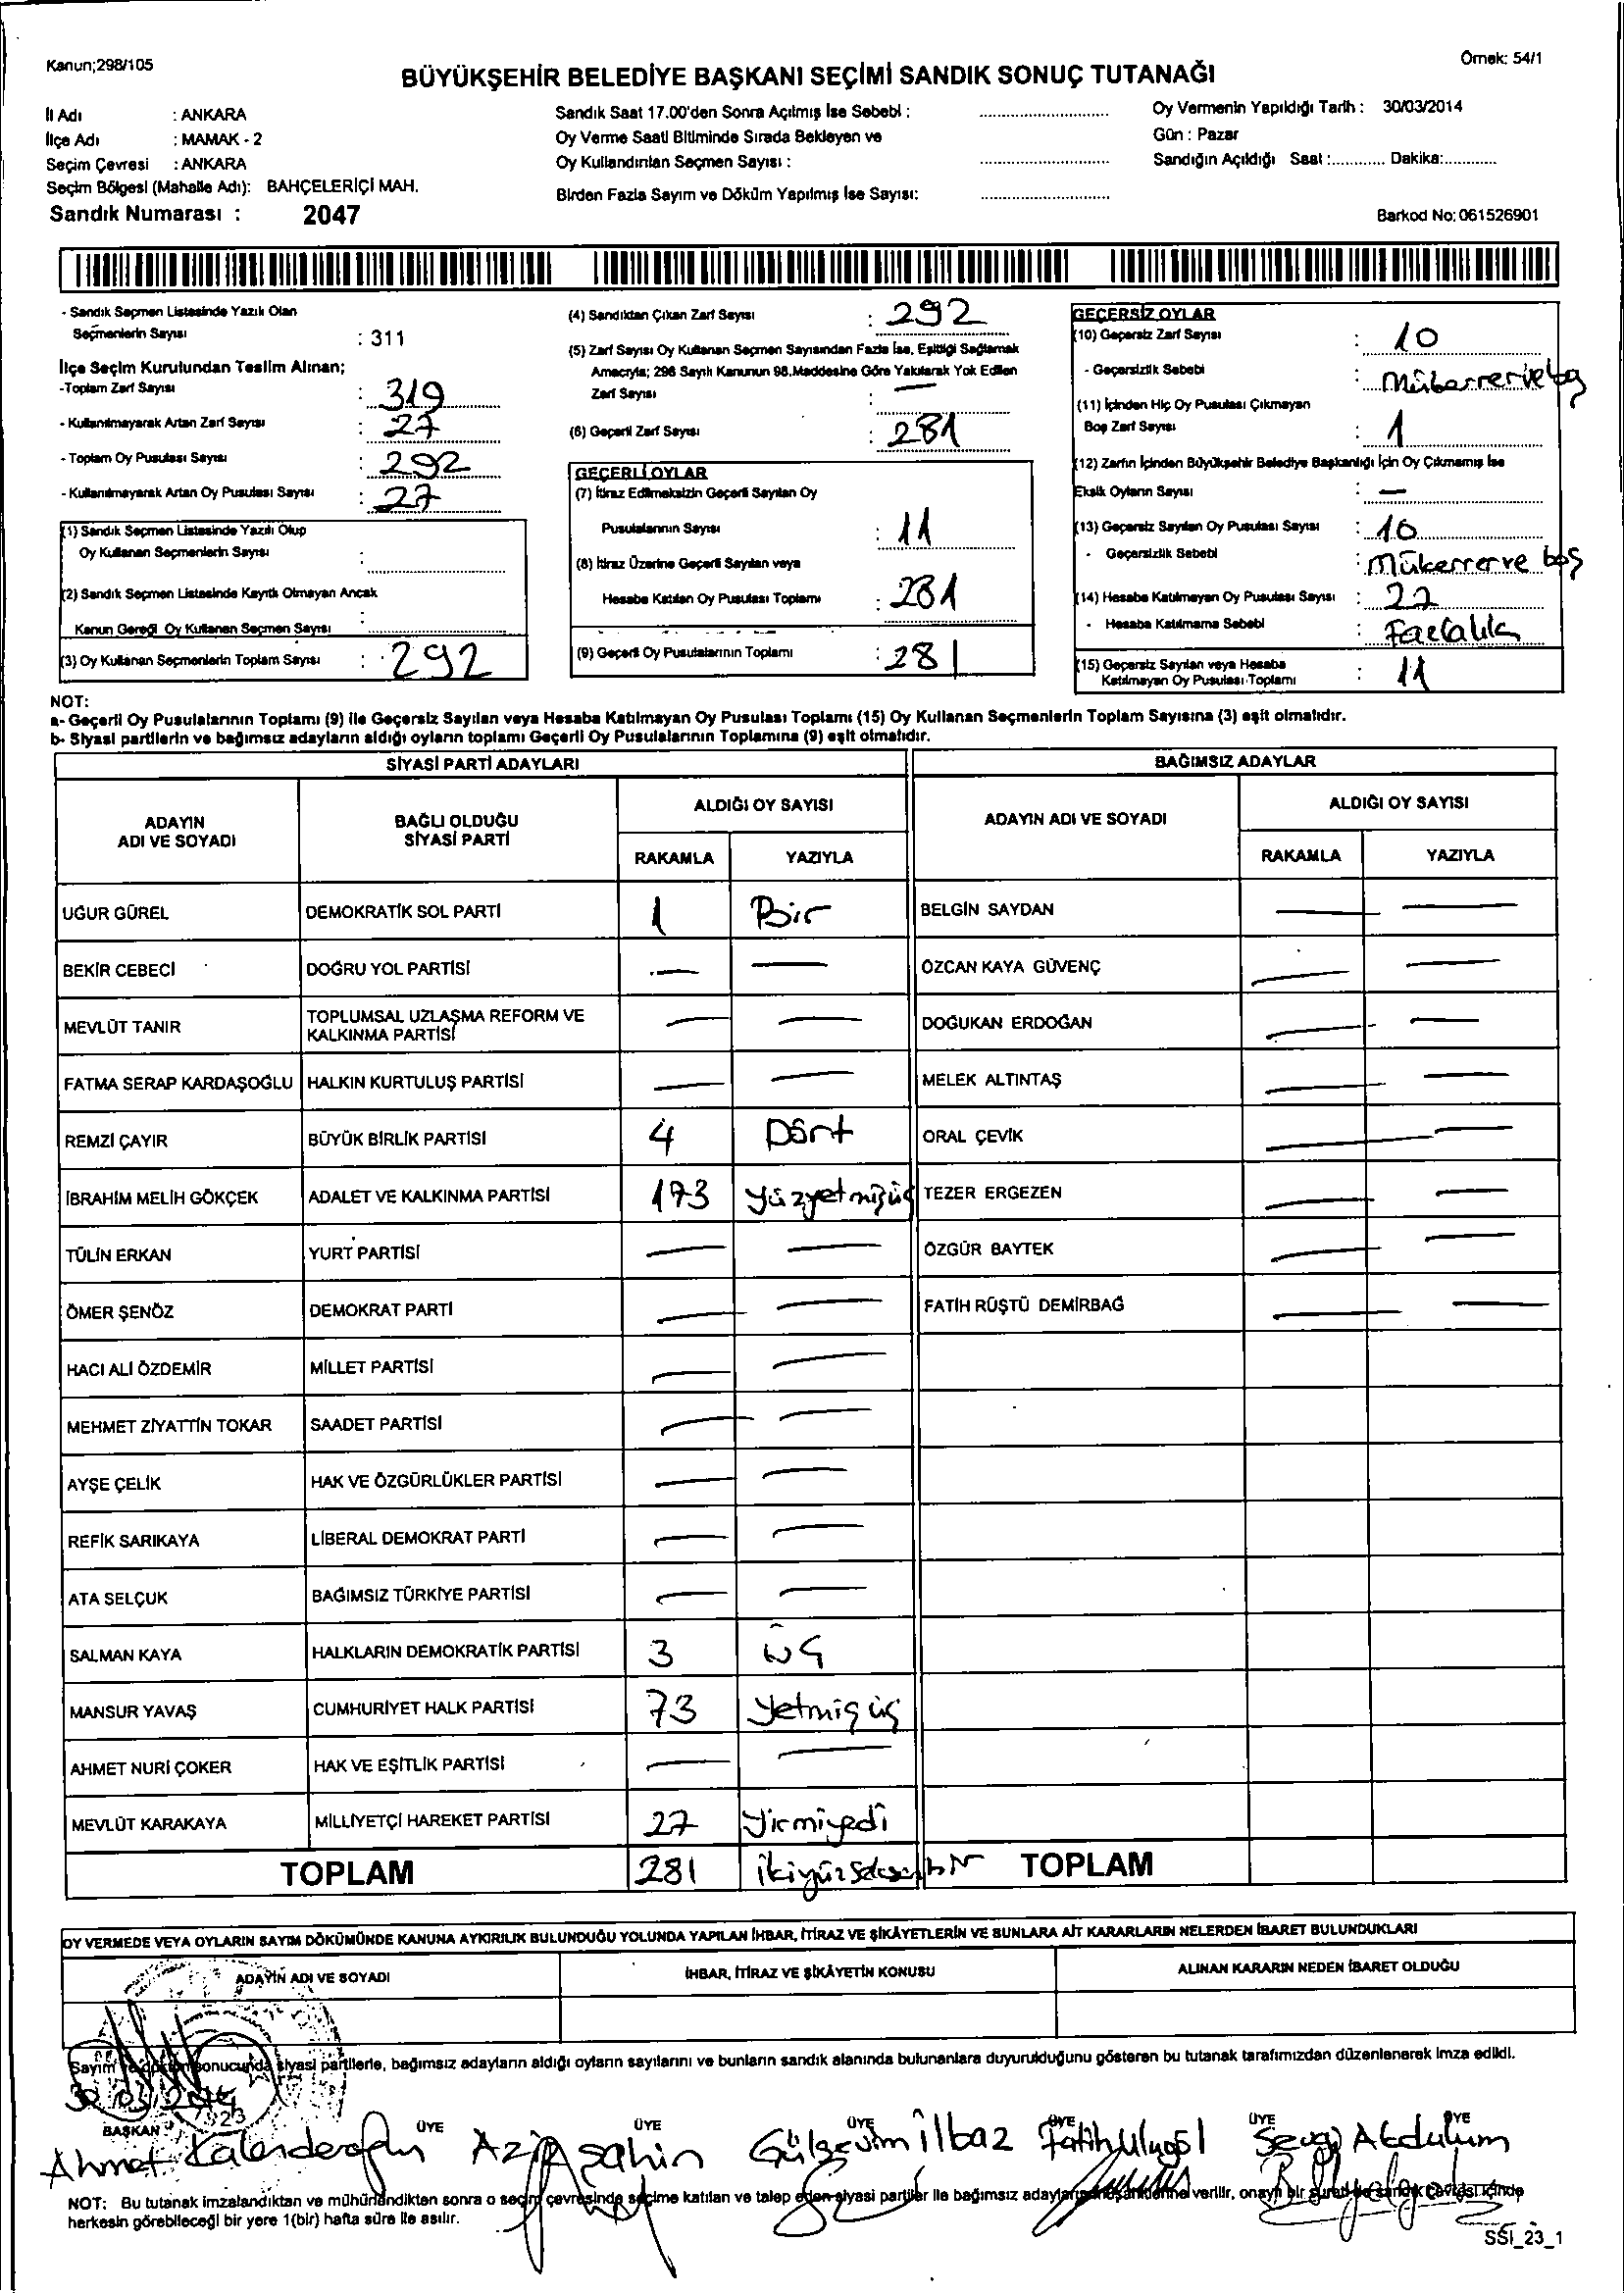 Kanun;298/105
Örnek: 54/1
BÜYÜKŞEHİR BELEDİYE BAŞKANI SEÇİMİ SANDIK SONUÇ TUTANAĞI
İl Adı : ANKARA
İlçe Adı : MAMAK - 2
Seçim Çevresi : ANKARA
Seçim Bölgesi (Mahalle Adı): BAHÇELERİÇİ MAH.
Sandık Numarası : 2047
Sandık Saat 17.00'den Sonra Açılmış İse Sebebi :
Oy Verme Saati Bitiminde Sırada Bekleyen ve
Oy Kullandırılan Seçmen Sayısı :
Birden Fazla Sayım ve Döküm Yapılmış İse Sayısı:
Oy Vermenin Yapıldığı Tarih : 30/03/2014
Gün : Pazar
Sandığın Açıldığı Saat :............ Dakika:............
Barkod No: 061526901
- Sandık Seçmen Listesinde Yazılı Olan
Seçmenlerin Sayısı : 311
İlçe Seçim Kurulundan Teslim Alınan;
-Toplam Zarf Sayısı : 319
- Kullanılmayarak Artan Zarf Sayısı : 27
- Toplam Oy Pusulası Sayısı : 292
- Kullanılmayarak Artan Oy Pusulası Sayısı : 27
(1) Sandık Seçmen Listesinde Yazılı Olup
Oy Kullanan Seçmenlerin Sayısı :
(2) Sandık Seçmen Listesinde Kayıtlı Olmayan Ancak
Kanun Gereği Oy Kullanan Seçmen Sayısı :
(3) Oy Kullanan Seçmenlerin Toplam Sayısı : 292
(4) Sandıktan Çıkan Zarf Sayısı : 292
(5) Zarf Sayısı Oy Kullanan Seçmen Sayısından Fazla İse, Eşitliği Sağlamak
Amacıyla; 298 Sayılı Kanunun 98.Maddesine Göre Yakılarak Yok Edilen
Zarf Sayısı : —
(6) Geçerli Zarf Sayısı : 281
GEÇERLİ OYLAR
(7) İtiraz Edilmeksizin Geçerli Sayılan Oy
Pusulalarının Sayısı : 11
(8) İtiraz Üzerine Geçerli Sayılan veya
Hesaba Katılan Oy Pusulası Toplamı : 281
(9) Geçerli Oy Pusulalarının Toplamı : 281
GEÇERSİZ OYLAR
(10) Geçersiz Zarf Sayısı : 10
- Geçersizlik Sebebi : Mükerrer ve boş
(11) İçinden Hiç Oy Pusulası Çıkmayan
Boş Zarf Sayısı : 1
(12) Zarfın İçinden Büyükşehir Belediye Başkanlığı İçin Oy Çıkmamış İse
Eksik Oyların Sayısı : —
(13) Geçersiz Sayılan Oy Pusulası Sayısı : 10
- Geçersizlik Sebebi : Mükerrer ve boş
(14) Hesaba Katılmayan Oy Pusulası Sayısı : 27
- Hesaba Katılmama Sebebi : Fazlalık
(15) Geçersiz Sayılan veya Hesaba
Katılmayan Oy Pusulası Toplamı : 11
NOT:
a- Geçerli Oy Pusulalarının Toplamı (9) ile Geçersiz Sayılan veya Hesaba Katılmayan Oy Pusulası Toplamı (15) Oy Kullanan Seçmenlerin Toplam Sayısına (3) eşit olmalıdır.
b- Siyasi partilerin ve bağımsız adayların aldığı oyların toplamı Geçerli Oy Pusulalarının Toplamına (9) eşit olmalıdır.
SİYASİ PARTİ ADAYLARI
BAĞIMSIZ ADAYLAR
ADAYIN ADI VE SOYADI
BAĞLI OLDUĞU SİYASİ PARTİ
ALDIĞI OY SAYISI
RAKAMLA YAZIYLA
ADAYIN ADI VE SOYADI
ALDIĞI OY SAYISI
RAKAMLA YAZIYLA
UĞUR GÜREL DEMOKRATİK SOL PARTİ 1 Bir BELGİN SAYDAN — —
BEKİR CEBECİ DOĞRU YOL PARTİSİ — — ÖZCAN KAYA GÜVENÇ — —
MEVLÜT TANIR TOPLUMSAL UZLAŞMA REFORM VE KALKINMA PARTİSİ — — DOĞUKAN ERDOĞAN — —
FATMA SERAP KARDAŞOĞLU HALKIN KURTULUŞ PARTİSİ — — MELEK ALTINTAŞ — —
REMZİ ÇAYIR BÜYÜK BİRLİK PARTİSİ 4 Dört ORAL ÇEVİK — —
İBRAHİM MELİH GÖKÇEK ADALET VE KALKINMA PARTİSİ 173 yüzyetmişüç TEZER ERGEZEN — —
TÜLİN ERKAN YURT PARTİSİ — — ÖZGÜR BAYTEK — —
ÖMER ŞENÖZ DEMOKRAT PARTİ — — FATİH RÜŞTÜ DEMİRBAĞ — —
HACI ALİ ÖZDEMİR MİLLET PARTİSİ — —
MEHMET ZİYATTİN TOKAR SAADET PARTİSİ — —
AYŞE ÇELİK HAK VE ÖZGÜRLÜKLER PARTİSİ — —
REFİK SARIKAYA LİBERAL DEMOKRAT PARTİ — —
ATA SELÇUK BAĞIMSIZ TÜRKİYE PARTİSİ — —
SALMAN KAYA HALKLARIN DEMOKRATİK PARTİSİ 3 üç
MANSUR YAVAŞ CUMHURİYET HALK PARTİSİ 73 yetmiş üç
AHMET NURİ ÇOKER HAK VE EŞİTLİK PARTİSİ — —
MEVLÜT KARAKAYA MİLLİYETÇİ HAREKET PARTİSİ 27 yirmiyedi
TOPLAM 281 ikiyüzseksenbir TOPLAM
OY VERMEDE VEYA OYLARIN SAYIM DÖKÜMÜNDE KANUNA AYKIRILIK BULUNDUĞU YOLUNDA YAPILAN İHBAR, İTİRAZ VE ŞİKÂYETLERİN VE BUNLARA AİT KARARLARIN NELERDEN İBARET BULUNDUKLARI
ADAYIN ADI VE SOYADI
İHBAR, İTİRAZ VE ŞİKÂYETİN KONUSU
ALINAN KARARIN NEDEN İBARET OLDUĞU
Sayım ve döküm sonucunda siyasi partilerle, bağımsız adayların aldığı oyların sayılarını ve bunların sandık alanında bulunanlara duyurulduğunu gösteren bu tutanak tarafımızdan düzenlenerek imza edildi.
30/03/2014
BAŞKAN ÜYE ÜYE ÜYE ÜYE ÜYE ÜYE
Ahmet Kalenderoğlu Aziz Şahin Gülsevim İlbaz Fatih Sevgi
NOT: Bu tutanak imzalandıktan ve mühürlendikten sonra o seçim çevresinde seçime katılan ve talep eden siyasi partiler ile bağımsız adayların verilir, onaylı bir sureti de sandık çevresi içinde
herkesin görebileceği bir yere 1(bir) hafta süre ile asılır.
SSİ_23_1